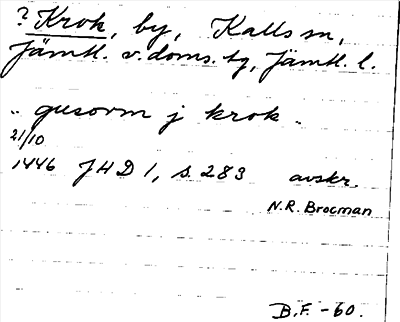 ? Krok, by, Kalls sn,
Jämtl. v. doms. tg, Jämtl. l.
„ gusorm j krok „
21/10
1446 JHD 1, s. 283 avskr.
N.R. Brocman
B.F. -60.